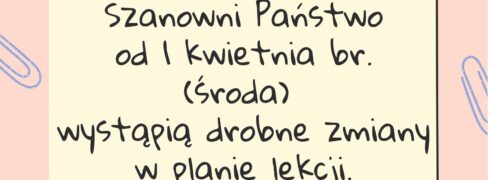 Szanowni Państwo
od 1 kwietnia br.
(środa)
wystąpią drobne zmiany
w planie lekcji.